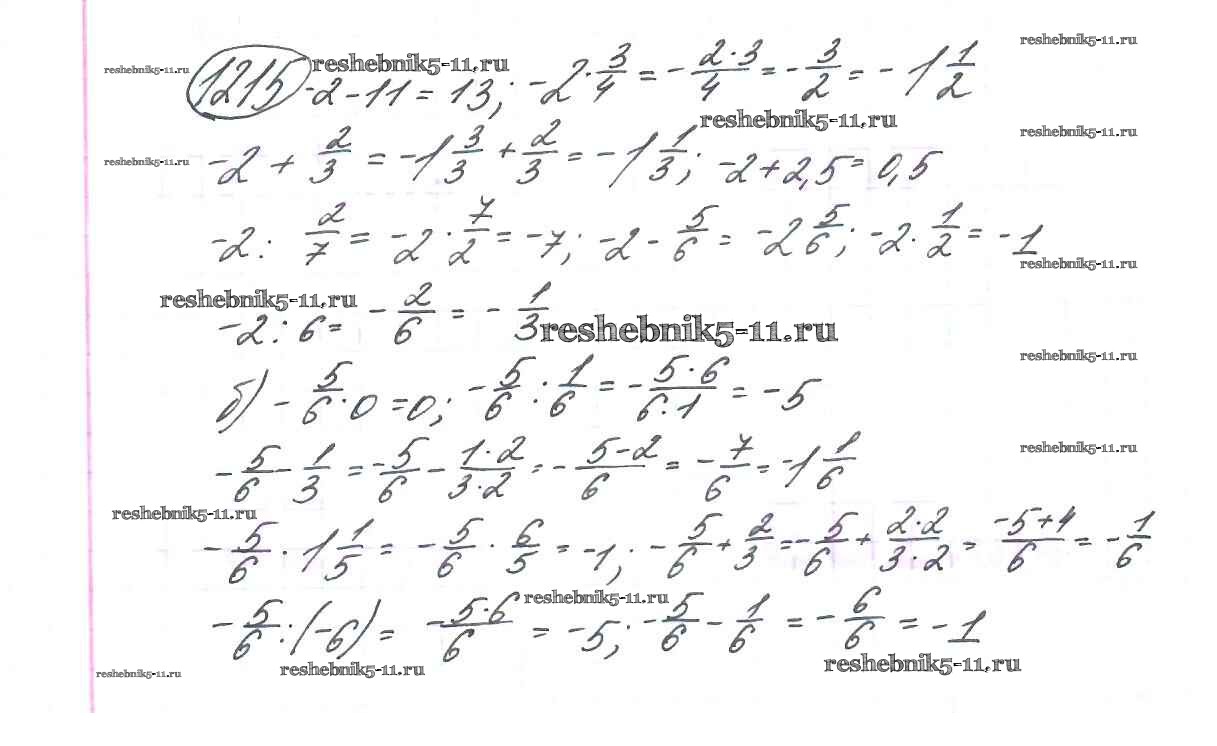 reshebnik5-11.ru
reshebnik5-11.ru reshebnik5-11.ru
1215 -2-11=13; -2·3/4=-2·3/4=-3/2=-1 1/2
reshebnik5-11.ru
reshebnik5-11.ru reshebnik5-11.ru
-2+2/3=-1 3/3+2/3=-1 1/3; -2+2,5=0,5
-2:2/7=-2·7/2=-7; -2-5/6=-2 5/6; -2·1/2=-1
reshebnik5-11.ru
reshebnik5-11.ru
-2:6=-2/6=-1/3
reshebnik5-11.ru
reshebnik5-11.ru
б) -5/6·0=0; -5/6:1/6=-5·6/6·1=-5
reshebnik5-11.ru
-5/6-1/3=-5/6-1·2/3·2=-5-2/6=-7/6=-1 1/6
reshebnik5-11.ru
-5/6·1 1/5=-5/6·6/5=-1; -5/6+2/3=-5/6+2·2/3·2=-5+4/6=-1/6
reshebnik5-11.ru
-5/6:(-6)=-5·6/6=-5; -5/6-1/6=-6/6=-1
reshebnik5-11.ru reshebnik5-11.ru reshebnik5-11.ru